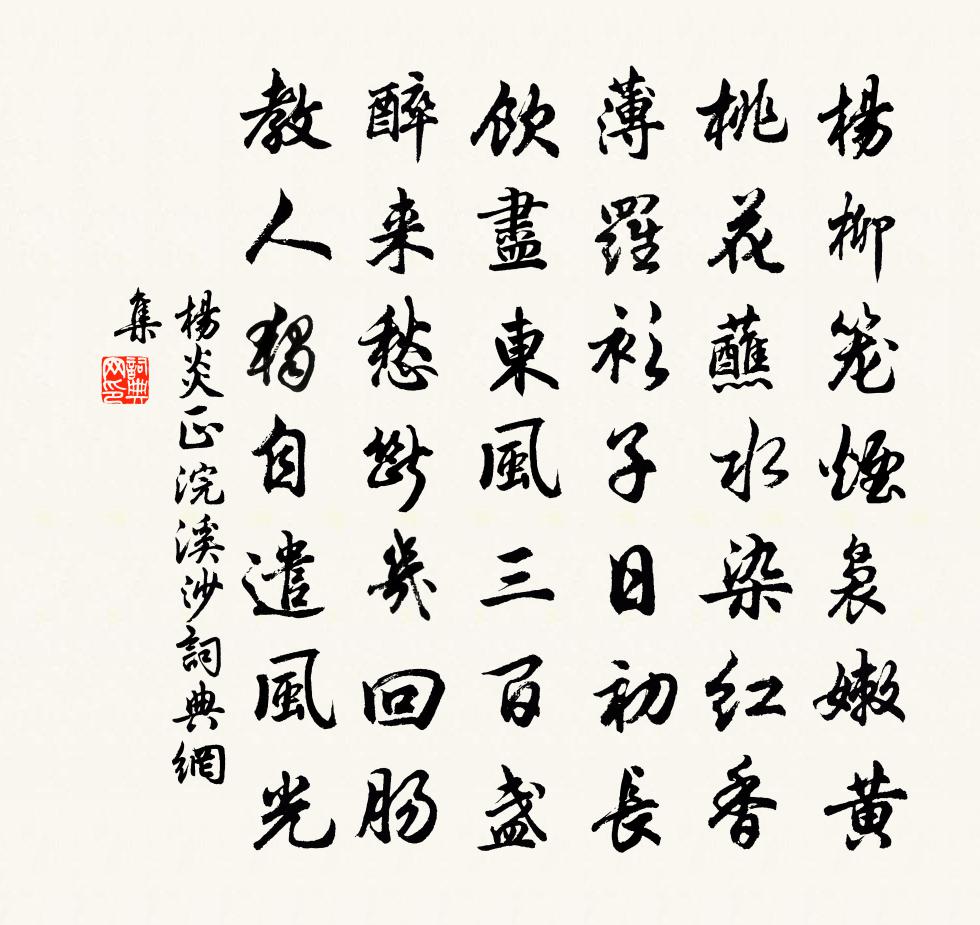 楊柳笼煙袅嫩黄
桃花蘸水染红香
薄羅衫子日初長
飲盡東風三百盏
醉来愁斷幾回肠
教人獨自遣風光
楊炎正浣溪沙詞典網
集
詞典网印